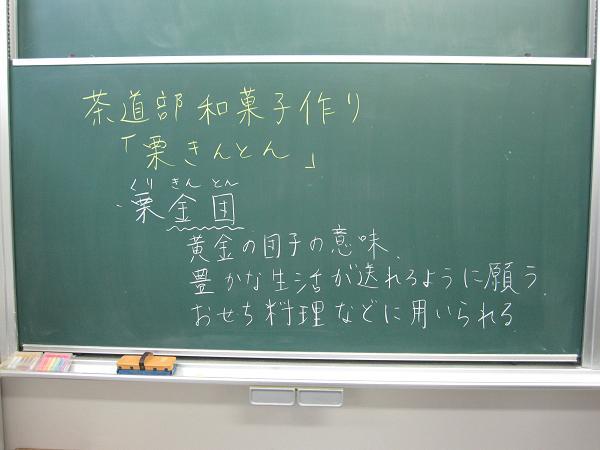 茶道部 和菓子作り
「栗きんとん」
くり きん とん
・栗金団
黄金の団子の意味.
豊かな生活が送れるように願う.
おせち料理などに用いられる